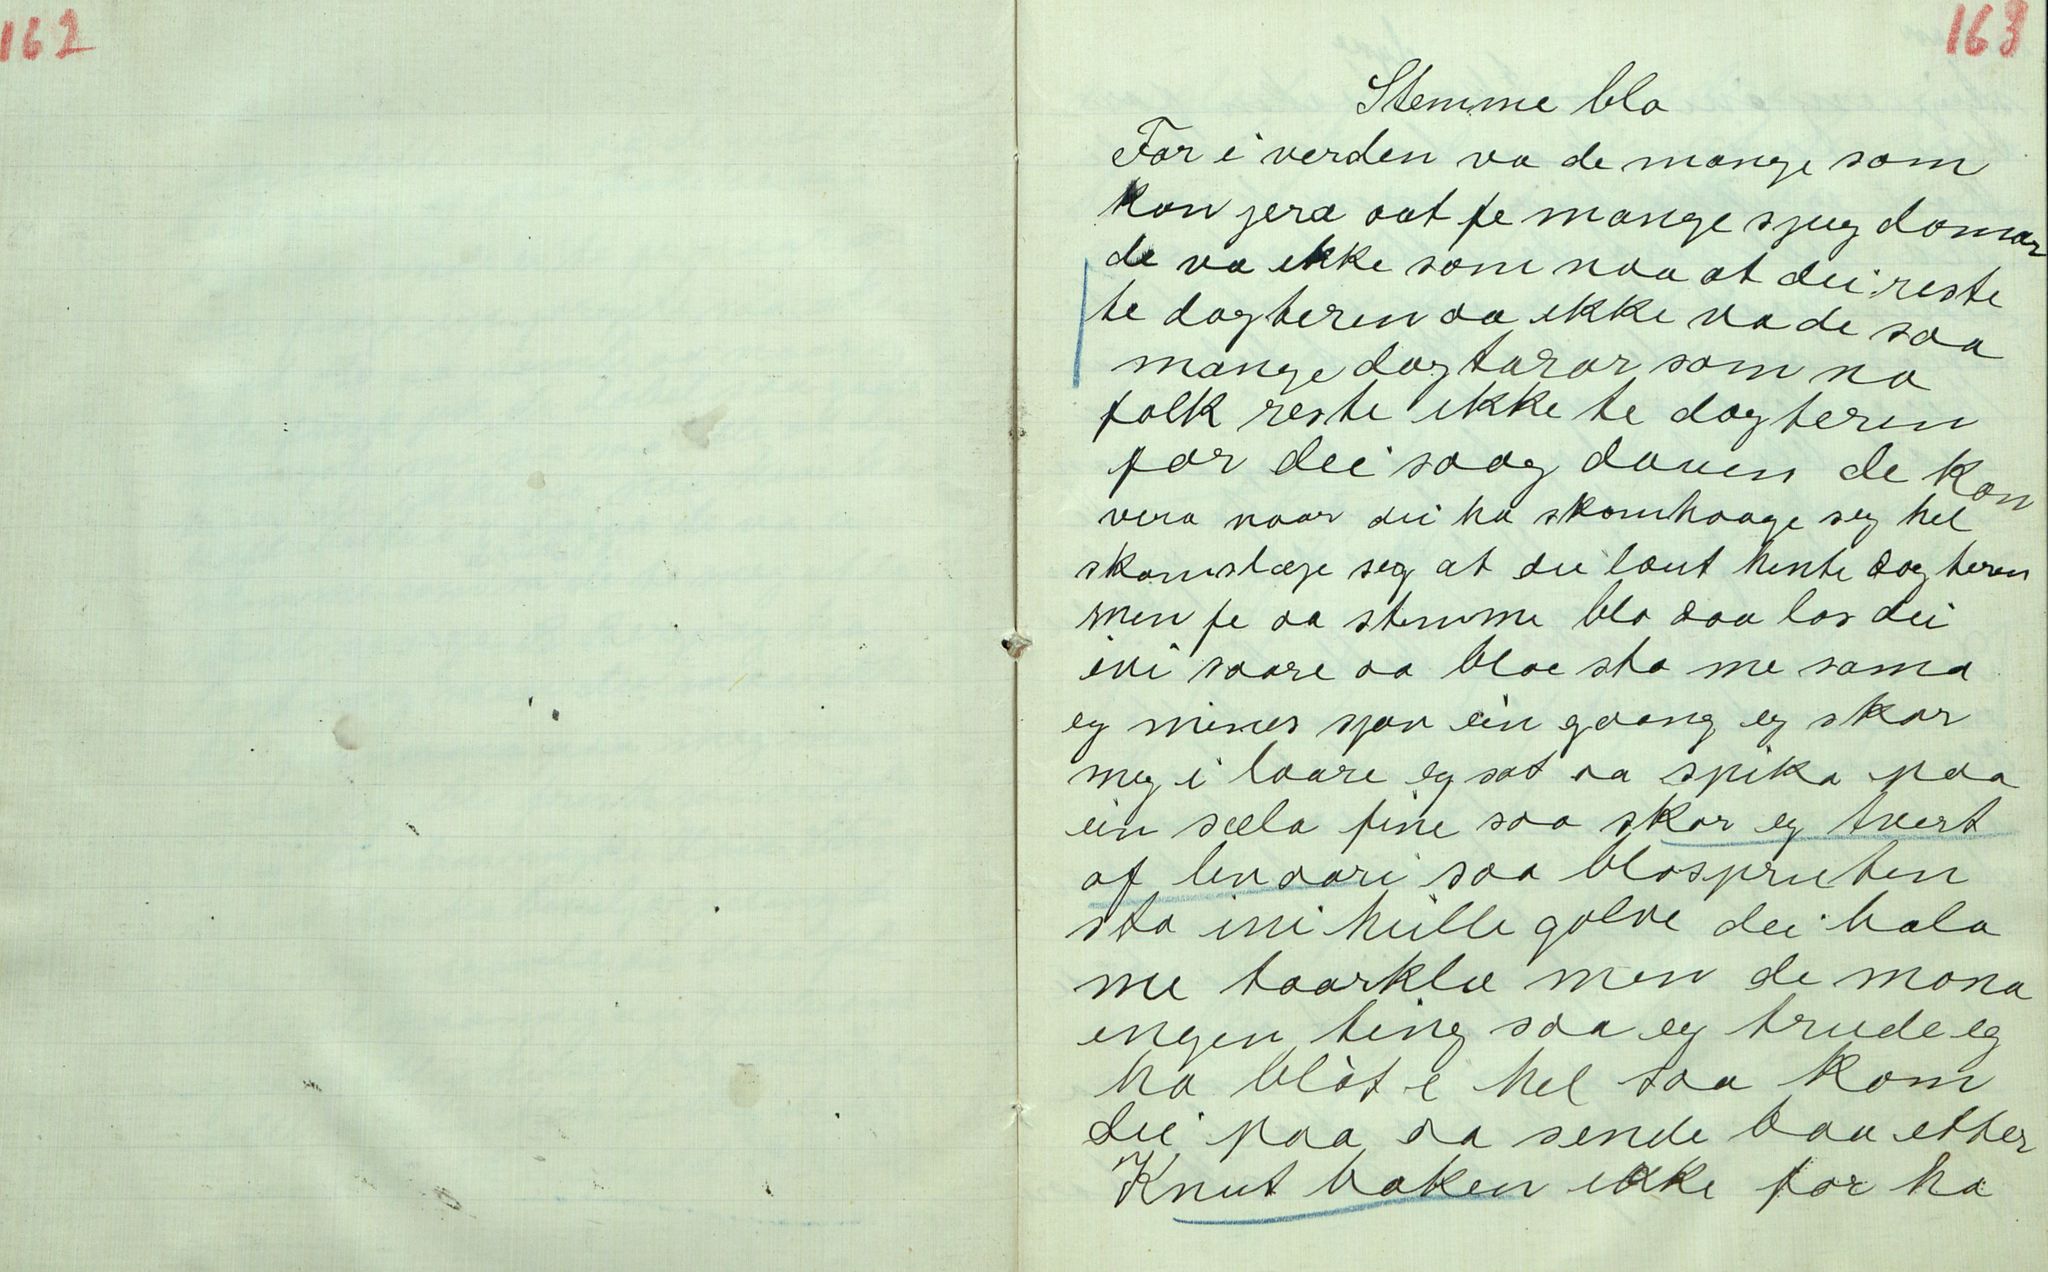 162
163
Stemme blo
For i verden va de mange som
kon jera aat fe mange sjug domar
de va ikke som naa at dei reste
te dogteren aa ikke va de saa
mange dogtarar som no
folk reste ikke te dogteren
for dei saag dauen de kon
vera naar dei ha skomhogge seg hel
skomslæje seg at dei laut hente dogteren
men fe aa stemme blo daa las dei
ivi saare aa bloe sto me soma
eg mines sjøv ein gaang eg skar
meg i laare eg sat aa spika paa
ein sæla pine saa skar eg tvert
af livaari saa blospruten
sto ini heille golve dei bala
me taarklæ men de mona
ingen ting saa eg trude eg
ha blòt i hel saa kom
dei paa aa sende baa etter
Knut baken ikke for ha